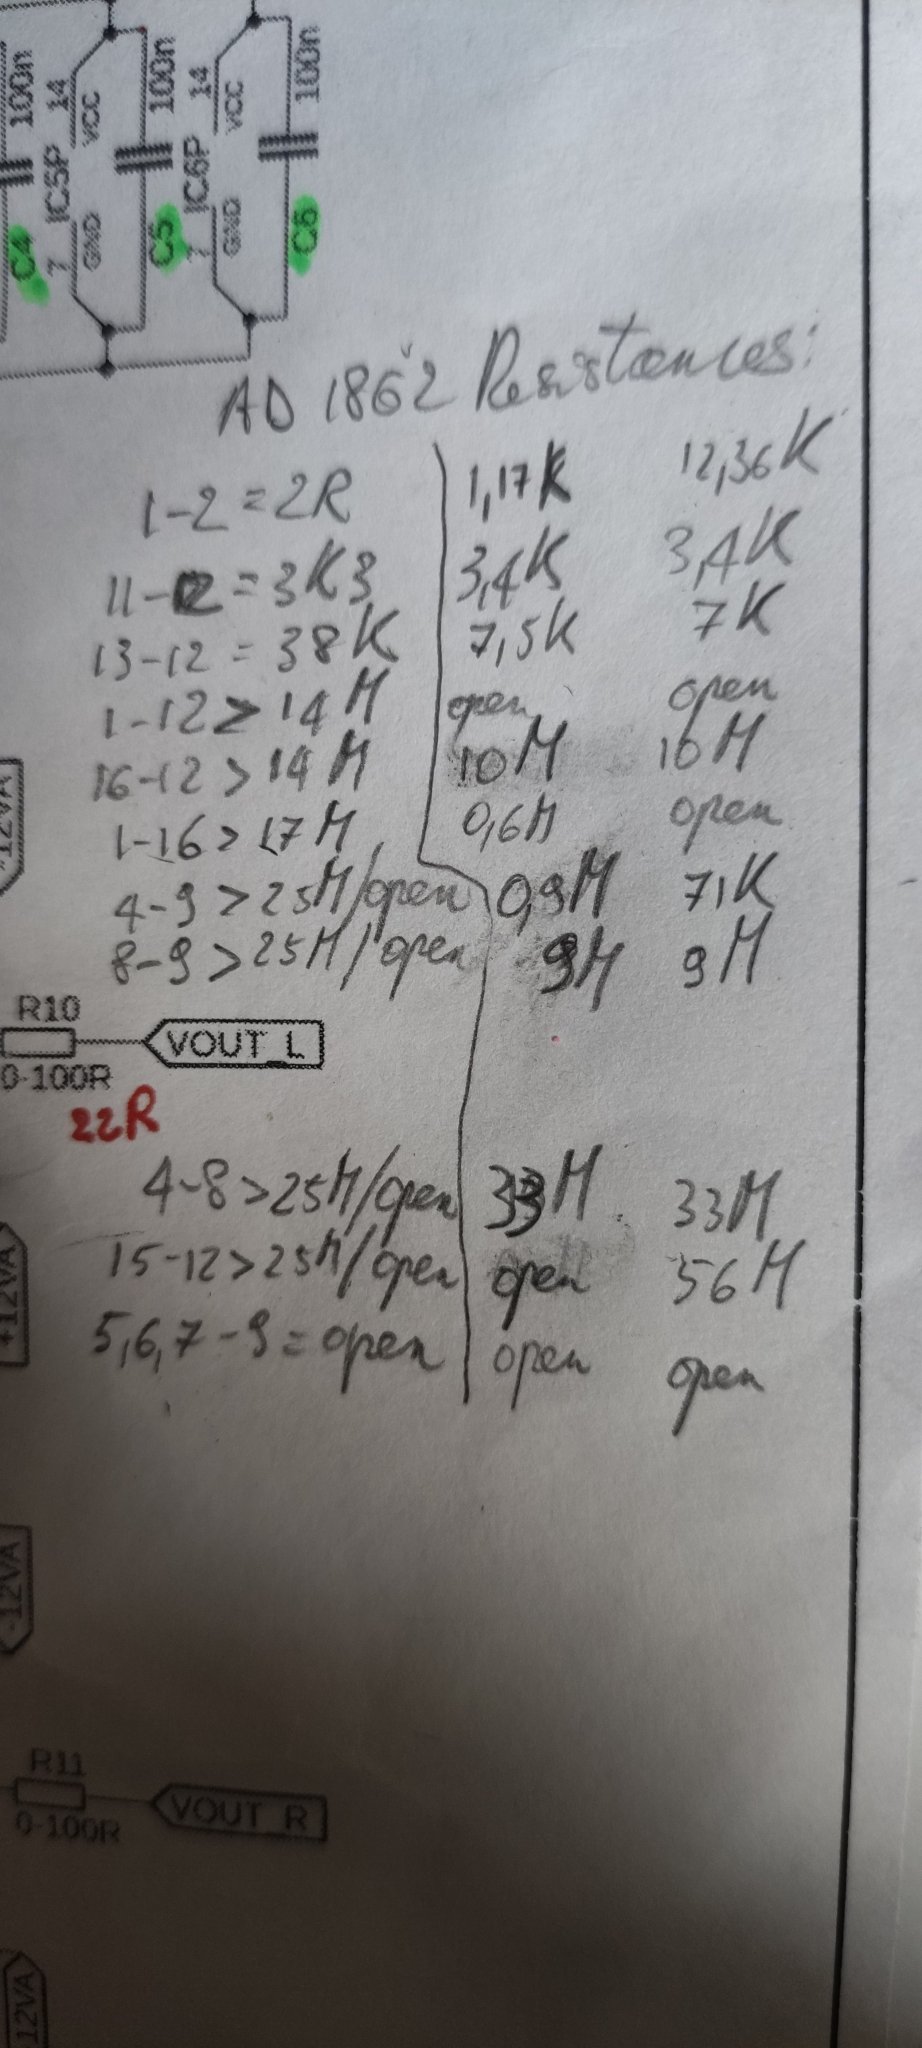 100n
14
VCC
IC5P
7
GND
C4
100n
14
VCC
IC6P
7
GND
C5
100n
C6
AD 1862 Resistances:
1-2 = 2R 1,17K 12,36K
11-12 = 3K3 3,4K 3,4K
13-12 = 38K 7,5K 7K
1-12 > 14M open open
16-12 > 14M 10M 10M
1-16 > 17M 0,6M open
4-9 > 25M/open 0,9M 7,1K
8-9 > 25M/open 9M 9M
-12VA
R10
VOUT_L
0-100R
22R
4-8 > 25M/open 33M 33M
15-12 > 25M/open open 56M
5,6,7-9 = open open open
+12VA
-12VA
R11
VOUT_R
0-100R
12VA